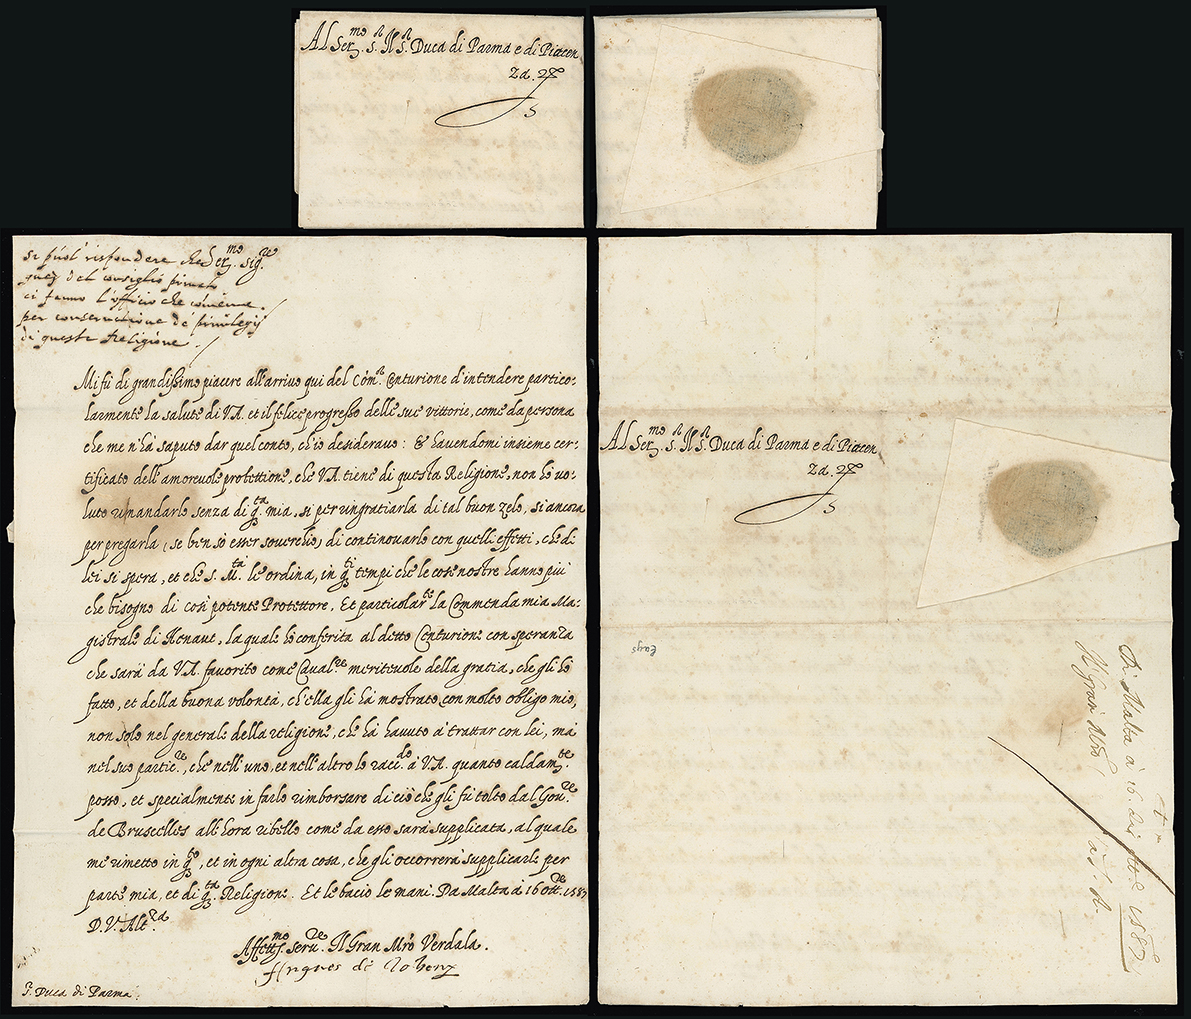 Al Ser.mo S.r Il S.r Duca di Parma e di Piacen
za. &c
S
si puol rispondere che Ser.mo sig.re
quej del consiglio privato
ci fanno l'officio che conviene
per conservatione dè privilegij
di queste Religione.
Mi fù di grandissimo piacere all'arrivo qui del Com.r Centurione d'intendere partico-
larmente la salute di V.A. et il felice progresso delle sue vittorie, come da persona
che me n'hà saputo dar quel conto, ch'io desideravo: & havendomi insieme cer-
tificato dell'amorevole protettione, che V.A. tiene di questa Religione, non hò vo-
luto rimandarlo senza di q.ta mia, si per ringratiarla di tal buon zelo, si ancora
per pregarla (se ben sò esser soverchio) di continovarlo con quelli effetti, che di
lei si spera, et che S. M.tà le ordina, in q.ti tempi che le cose nostre hanno più
che bisogno di così potente Protettore, Et particolar.te la Commenda mia Ma-
gistrale di Henaut, la quale hò conferita al detto Centurione con speranza
che sarà da V.A. favorito come Caval.re meritevole della gratia, che gli hò
fatto, et della buona volontà, ch'ella gli hà mostrato con molto obligo mio,
non solo nel generale della religione, che hà havuto à trattar con lei, mà
nel suo partic.re, che nell'uno, et nell'altro lo racc.do à V.A. quanto caldam.te
posso, et specialmente in farlo rimborsare di ciò che gli fù tolto dal Gov.re
de Bruselles all'hora ribello come da esso sarà supplicata, al quale
mi rimetto in q.to, et in ogni altra cosa, che gli occorrerà supplicarle per
parte mia, et di q.ta Religione. Et le bacio le mani. Da Malta à 16 ott.re 1587
D.V. Alt.za
Affett.mo serv.re Il Gran Mrò Verdala.
S. Duca di Parma.
Al Ser.mo S.r Il S.r Duca di Parma e di Piacen
za. &c
S
Di Malta à 16. di ott.e 1587
Il Gran Mrò
à S. A.